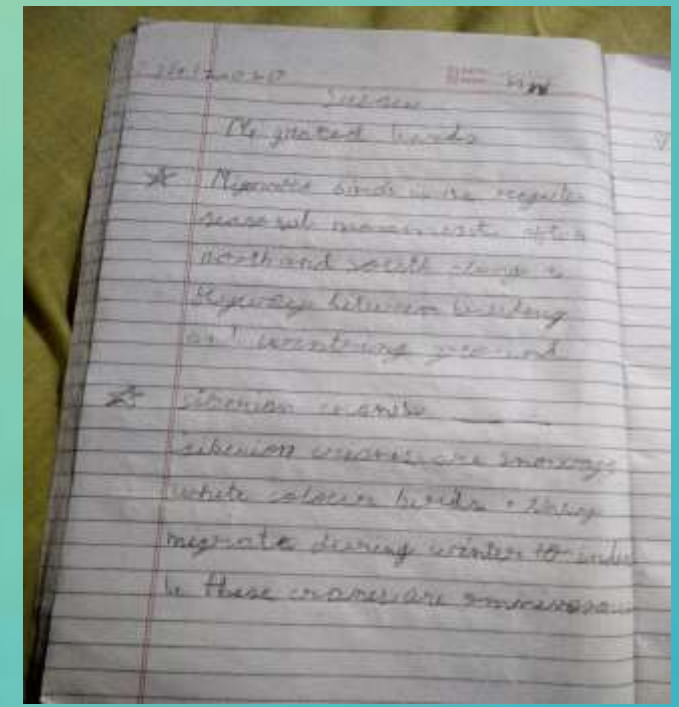 Science
Migrated birds
Migrated birds is the regular
seasonal movement often
north and south along a
flyway between breeding
and wintering ground
siberian cranes
Siberian cranes are snowy
white colour birds. They
migrate during winter to
these cranes are